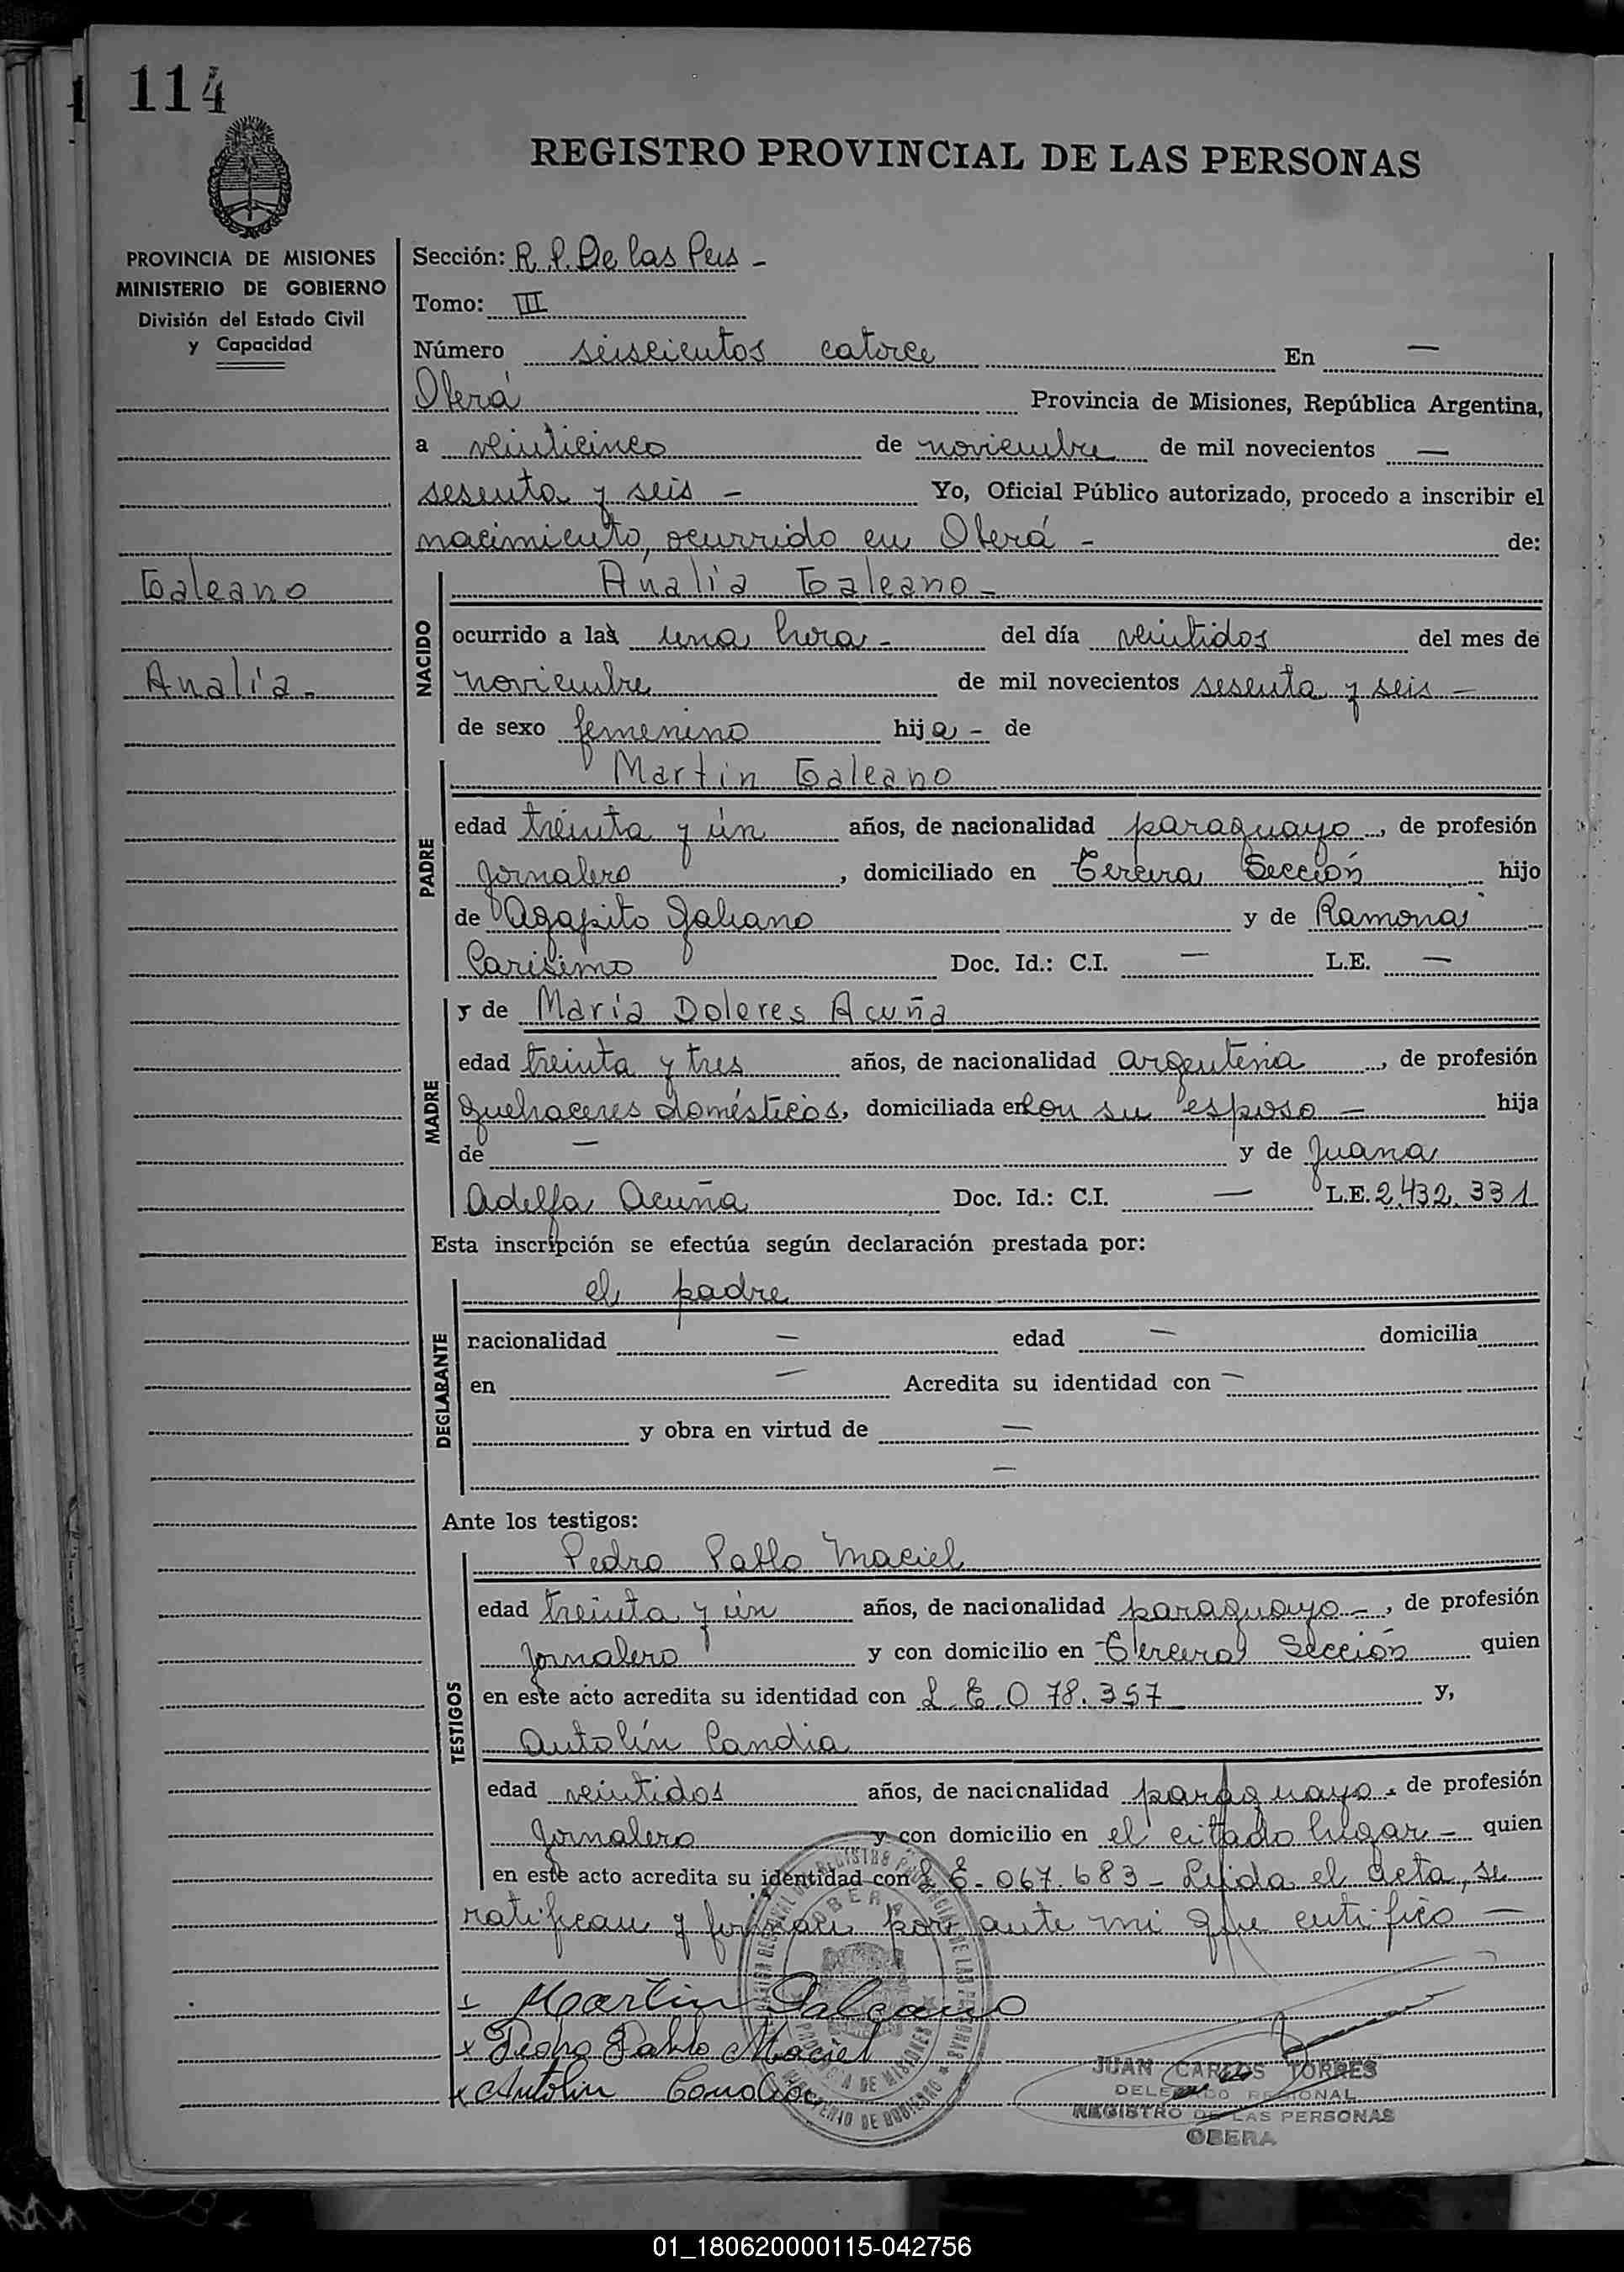 114
REGISTRO PROVINCIAL DE LAS PERSONAS
PROVINCIA DE MISIONES
MINISTERIO DE GOBIERNO
División del Estado Civil
y Capacidad
Galeano
Analía.-
Sección: R.P. De las Pers -
Tomo: III
Número seiscientos catorce En —
Oberá Provincia de Misiones, República Argentina,
a veinticinco de noviembre de mil novecientos —
sesenta y seis - Yo, Oficial Público autorizado, procedo a inscribir el
nacimiento, ocurrido en Oberá - de:
NACIDO
Analía Galeano -
ocurrido a las una hora - del día veintidos del mes de
noviembre de mil novecientos sesenta y seis -
de sexo femenino hija - de
PADRE
Martin Galeano
edad treinta y ún años, de nacionalidad paraguayo, de profesión
Jornalero, domiciliado en Tercera Sección hijo
de Agapito Galiano y de Ramona
Carisimo Doc. Id.: C.I. — L.E. —
MADRE
y de María Dolores Acuña
edad treinta y tres años, de nacionalidad argentina, de profesión
quehaceres domésticos, domiciliada en con su esposo — hija
de — y de Juana
Adelfa Acuña Doc. Id.: C.I. — L.E. 2.432.331
Esta inscripción se efectúa según declaración prestada por:
DECLARANTE
el padre
nacionalidad — edad — domicilia
en — Acredita su identidad con —
y obra en virtud de —
—
Ante los testigos:
TESTIGOS
Pedro Pablo Maciel
edad treinta y ún años, de nacionalidad paraguayo -, de profesión
Jornalero y con domicilio en Tercera Sección quien
en este acto acredita su identidad con L.E. 078.357 y,
Antolín Candia
edad veintidos años, de nacionalidad paraguayo - de profesión
Jornalero y con domicilio en el citado lugar - quien
en este acto acredita su identidad con L E - 067.683 - Leida el acta, se
ratifican y firman por ante mi que certifico —
x Martin Galeano
x Pedro Pablo Maciel
x Antolin Candia
OBERA
PROVINCIA DE MISIONES
MINISTERIO DE GOBIERNO
JUAN CARLOS TORRES
DELEGADO REGIONAL
REGISTRO DE LAS PERSONAS
OBERA
01_180620000115-042756